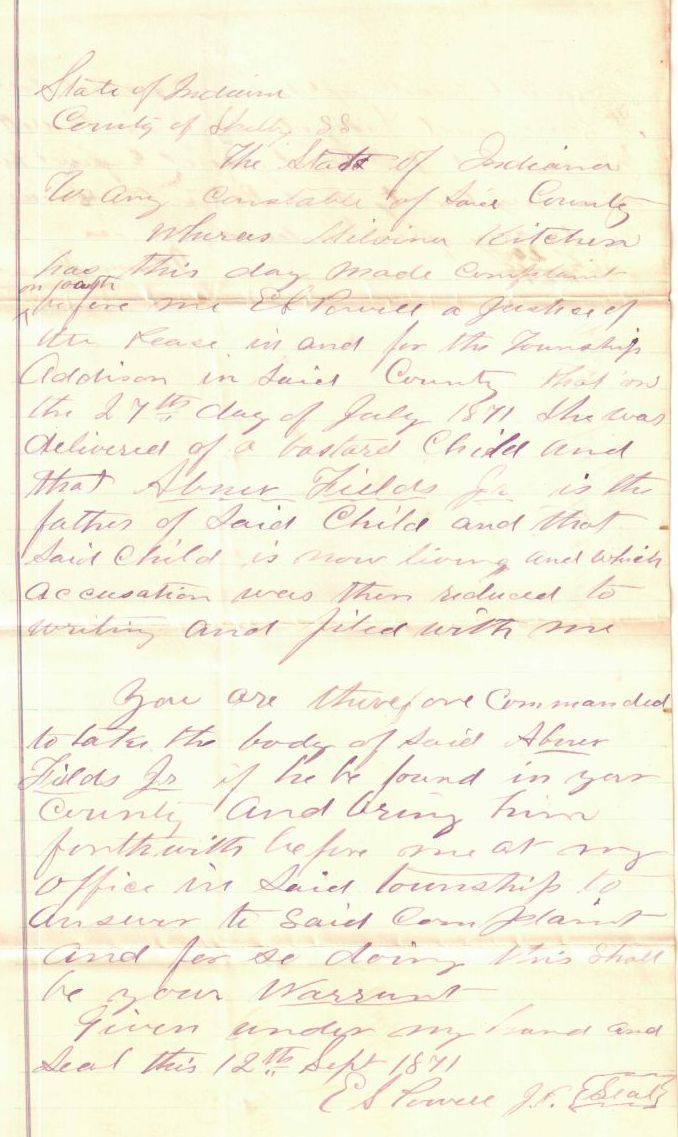 State of Indiana
County of Shelby SS
The State of Indiana
To any Constable of said County
Whereas Melvina Kitchen
has this day made Complaint
on oath
^ before me E S Powell a Justice of
the Peace in and for the Township
Addison in Said County that on
the 27th day of July 1871 She was
delivered of a bastard Child and
that Abner Fields Jr. is the
father of Said Child and that
Said Child is now living and which
accusation was then reduced to
writing and filed with me
You are therefore Commanded
to take the body of said Abner
Fields Jr if he be found in your
County and bring him
forthwith before me at my
office in Said township to
answer to Said Complaint
and for so doing this shall
be your Warrant
Given under my hand and
Seal this 12th Sept 1871
E S Powell J.P. {Seal}